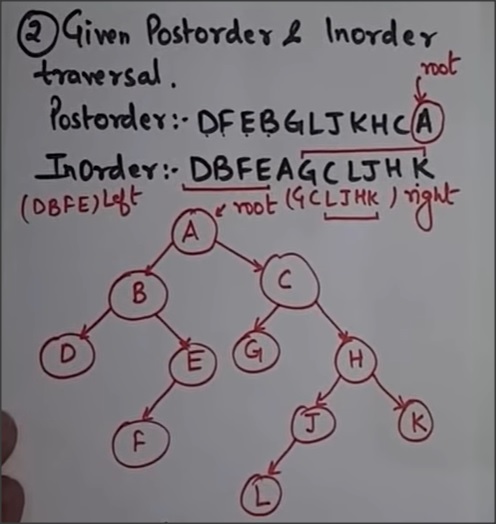 ② Given Postorder & Inorder
traversal.
root
Postorder:- DFEBGLJKHCA
InOrder:- DBFEAGCLJHK
(DBFE)Left root (GCLJHK) right
A
B C
D E G H
F J K
L